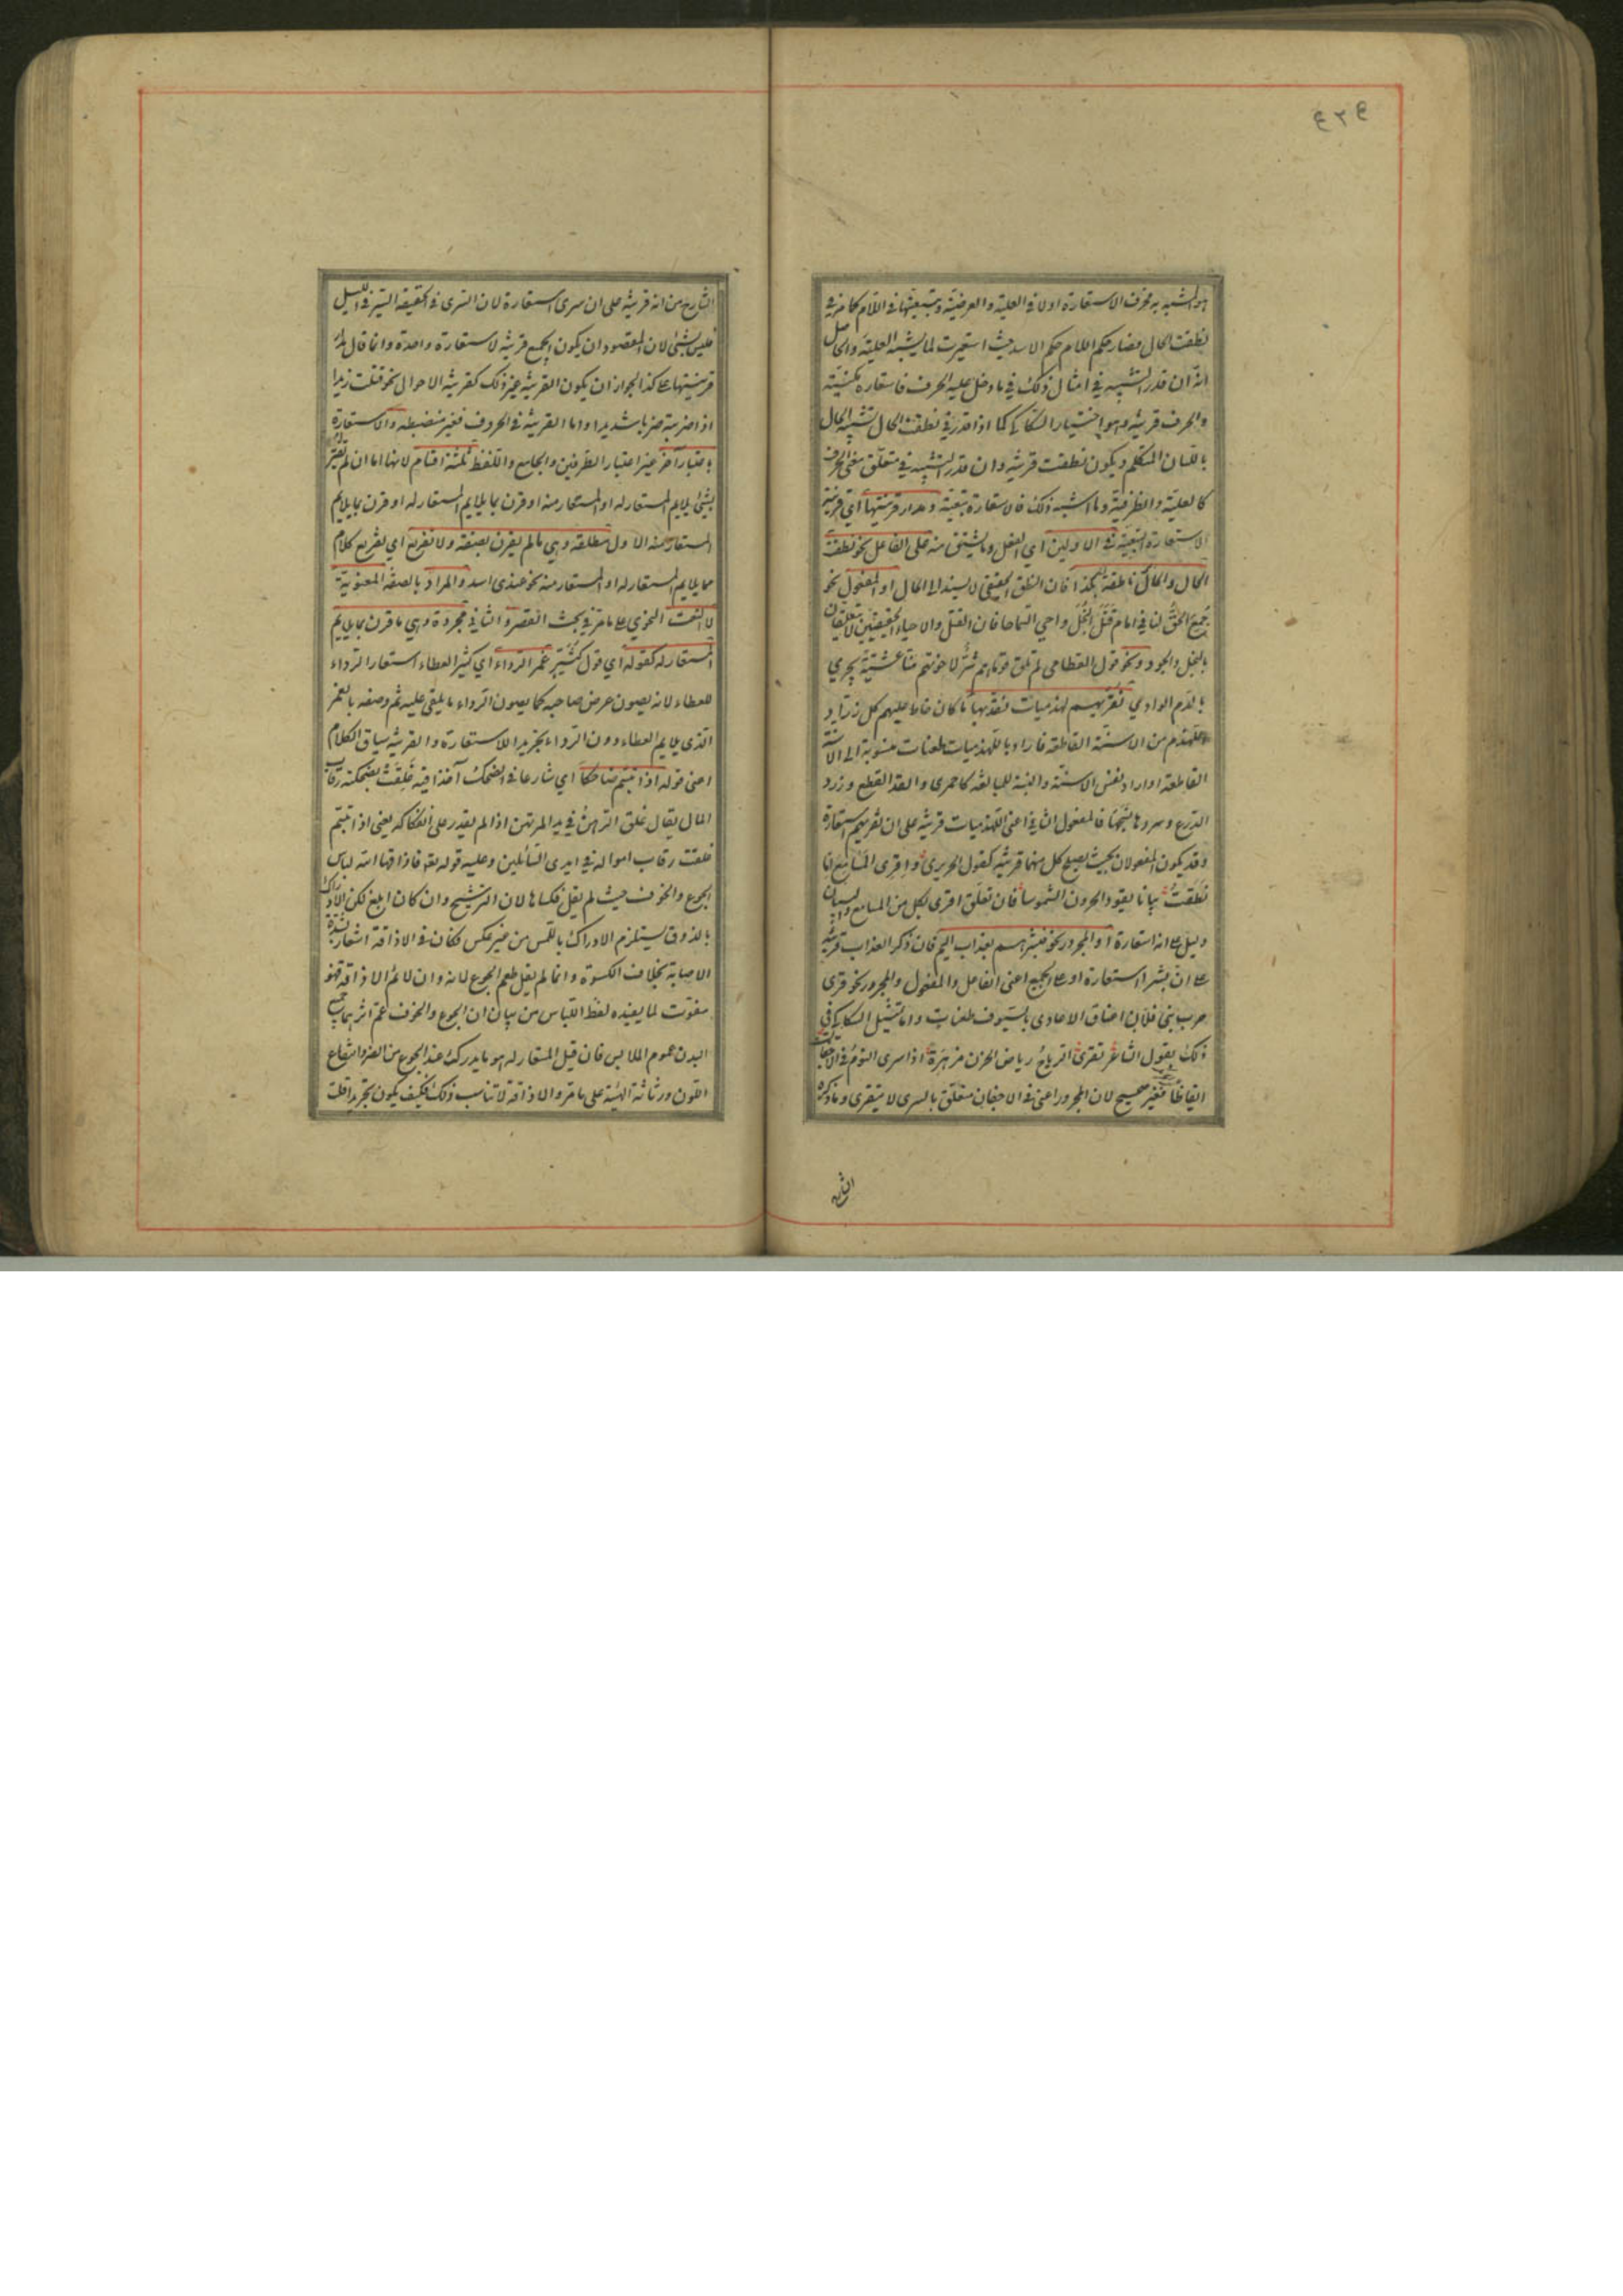 ٤٢٩
هو المشبه به فجرت الاستعارة اولا في العلية والغرضية وتبعيتها في اللام كما مر في
نطقت الحال فصار حكم اللام حكم الاسد حيث استعيرت لما يشبه العلية والحاصل
انه ان قدر التشبيه في امثال ذلك في ما دخل عليه الحرف فاستعارة مكنية
والحرف قرينة وهو اختيار السكاكي كما اذا قدر في نطقت الحال تشبيه الحال
باللسان المتكلم ويكون نطقت قرينة وان قدر التشبيه في متعلق معنى الحرف
كالعلية والظرفية وما اشبه ذلك فالاستعارة تبعية ومدار قرينتها اي قرينة
الاستعارة التبعية في الاولين اي الفعل وما يشتق منه على الفاعل نحو نطقت
الحال والحال ناطقة بكذا فان النطق الحقيقي لا يسند الى الحال او المفعول نحو
جمع الحق لنا في امام قتل البخل واحيى السماحا فان القتل والاحياء الحقيقيين لا يتعلقان
بالبخل والجود ونحو قول القطامي لم تلق قوما هم شر لاخوتهم منا عشية يجري
بالدم الوادي نقريهم لهذميات نقد بها ما كان خاط عليهم كل زراد
اللهذم من الاسنة القاطعة فاراد باللهذميات طعنات منسوبة الى الاسنة
القاطعة او اراد نفس الاسنة والنسبة للمبالغة كاحمري والقد القطع وزرد
الدرع وسردها نسجها فالمفعول الثاني اعني اللهذميات قرينة على ان نقريهم استعارة
وقد يكون المفعولان بحيث يصلح كل منهما قرينة كقول الحريري واقري المسامع اما
نطقت بيانا يقود الحرون الشموسا فان تعلق اقري بكل من المسامع والبيان
دليل على انه استعارة او المجرور نحو فبشرهم بعذاب اليم فان ذكر العذاب قرينة
على ان بشر استعارة او على الجميع اعني الفاعل والمفعول والمجرور نحو قرى
حرب بني فلان اعناق الاعادي بالسيوف طعنات واما تمثيل السكاكي في
ذلك بقول الشاعر تقري الرياح رياض الحزن مزهرة اذا سرى النوم في الاجفان
ايقاظا فغير صحيح لان المجرور اعني في الاجفان متعلق بالسرى لا بتقري وما ذكره
الشارح
الشارح من انه قرينة على ان سرى استعارة لان السرى في الحقيقة السير في الليل
فليس بشئ لان المقصود ان يكون الجميع قرينة لاستعارة واحدة وانما قال مدار
قرينتها على كذا لجواز ان يكون القرينة غير ذلك كقرينة الاحوال نحو قتلت زيدا
اذا ضربته ضربا شديدا واما القرينة في الحروف فغير منضبطة والاستعارة
باعتبار آخر غير اعتبار الطرفين والجامع واللفظ ثلثة اقسام لانها اما ان لم تقترن
بشئ يلايم المستعار له او المستعار منه او قرن بما يلايم المستعار له او قرن بما يلايم
المستعار منه الاول مطلقة وهي ما لم يقرن بصفة ولا تفريع اي تفريع كلام
مما يلايم المستعار له او المستعار منه نحو عندي اسد والمراد بالصفة المعنوية
لا النعت النحوي على ما مر في بحث القصر والثاني مجردة وهي ما قرن بما يلايم
المستعار له كقوله اي قول كثير غمر الرداء اي كثير العطاء استعار الرداء
للعطاء لانه يصون عرض صاحبه كما يصون الرداء ما يلقى عليه ثم وصفه بالغمر
الذي يلايم العطاء دون الرداء تجريدا للاستعارة والقرينة سياق الكلام
اعني قوله اذا تبسم ضاحكا اي شارعا في الضحك آخذا فيه غلقت بضحكته رقاب
المال يقال غلق الرهن في يد المرتهن اذا لم يقدر على انفكاكه يعني اذا تبسم
غلقت رقاب امواله في ايدي السائلين وعليه قوله تعه فاذاقها الله لباس
الجوع والخوف حيث لم يقل فكساها لان الترشيح وان كان ابلغ لكن الادراك
بالذوق يستلزم الادراك باللمس من غير عكس فكان في الاذاقة اشعار بشدة
الاصابة بخلاف الكسوة وانما لم يقل طعم الجوع لانه وان لائم الاذاقة فهو
مفوت لما يفيده لفظ اللباس من بيان ان الجوع والخوف عم اثرهما جميع
البدن عموم الملابس فان قيل المستعار له هو ما يدرك عند الجوع من الضر وانتقاع
اللون ورثاثة الهيئة على ما مر والاذاقة لا تناسب ذلك فكيف يكون تجريدا قلت